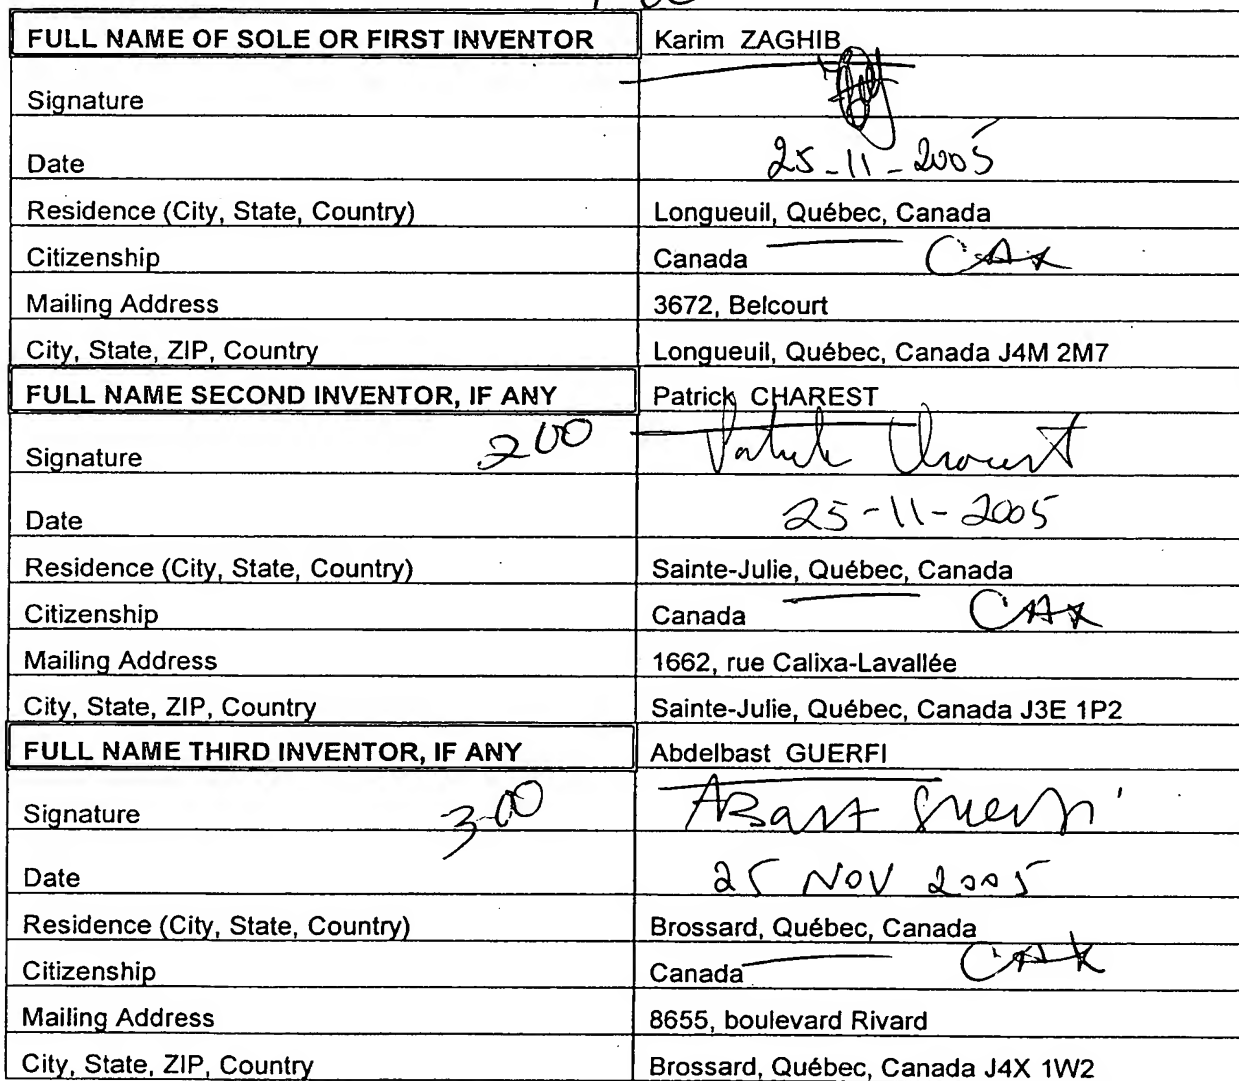 FULL NAME OF SOLE OR FIRST INVENTOR Karim ZAGHIB
Signature
Date 25-11-2005
Residence (City, State, Country) Longueuil, Québec, Canada
Citizenship Canada CAX
Mailing Address 3672, Belcourt
City, State, ZIP, Country Longueuil, Québec, Canada J4M 2M7
FULL NAME SECOND INVENTOR, IF ANY Patrick CHAREST
Signature 200 Patrick Charest
Date 25-11-2005
Residence (City, State, Country) Sainte-Julie, Québec, Canada
Citizenship Canada CAX
Mailing Address 1662, rue Calixa-Lavallée
City, State, ZIP, Country Sainte-Julie, Québec, Canada J3E 1P2
FULL NAME THIRD INVENTOR, IF ANY Abdelbast GUERFI
Signature 300 ABast Guerfi
Date 25 NOV 2005
Residence (City, State, Country) Brossard, Québec, Canada
Citizenship Canada CAX
Mailing Address 8655, boulevard Rivard
City, State, ZIP, Country Brossard, Québec, Canada J4X 1W2